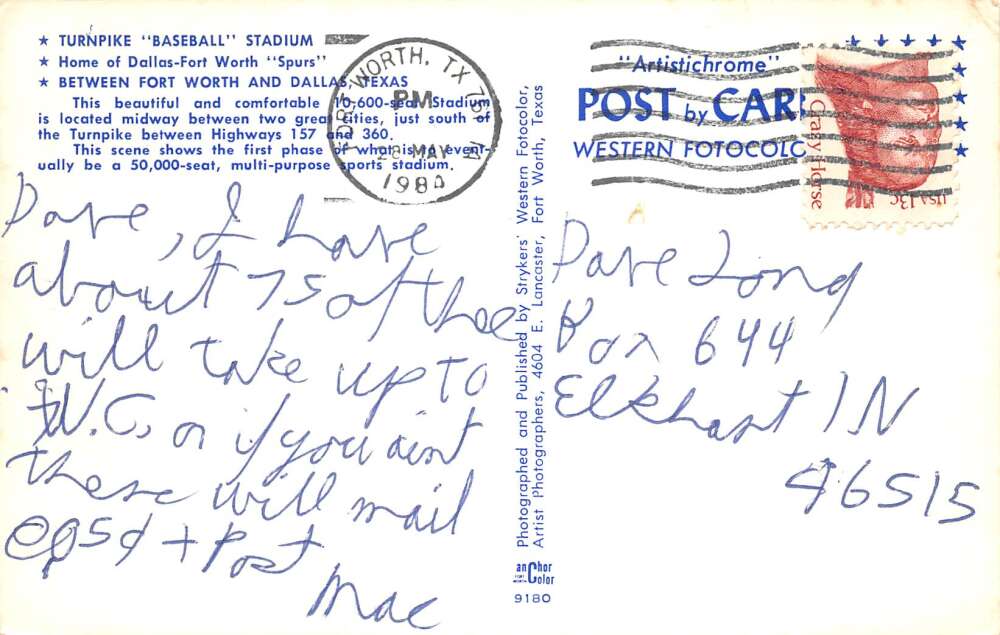 ★ TURNPIKE "BASEBALL" STADIUM
★ Home of Dallas-Fort Worth "Spurs"
★ BETWEEN FORT WORTH AND DALLAS, TEXAS
This beautiful and comfortable 10,600-seat Stadium
is located midway between two great cities, just south of
the Turnpike between Highways 157 and 360.
This scene shows the first phase of what is to event-
ually be a 50,000-seat, multi-purpose sports stadium.
FORT WORTH, TX 761
PM
MAY
1984
"Artistichrome"
POST by CAR
WESTERN FOTOCOLO
Crazy Horse
USA 13c
Dave, I have
about 75 of these
will take up to
W.C. or if you aint
there will mail
@ 5¢ + Post
Mac
Photographed and Published by Strykers' Western Fotocolor,
Artist Photographers, 4604 E. Lancaster, Fort Worth, Texas
anChor
Color
9180
Dave Long
Box 644
Elkhart IN
46515